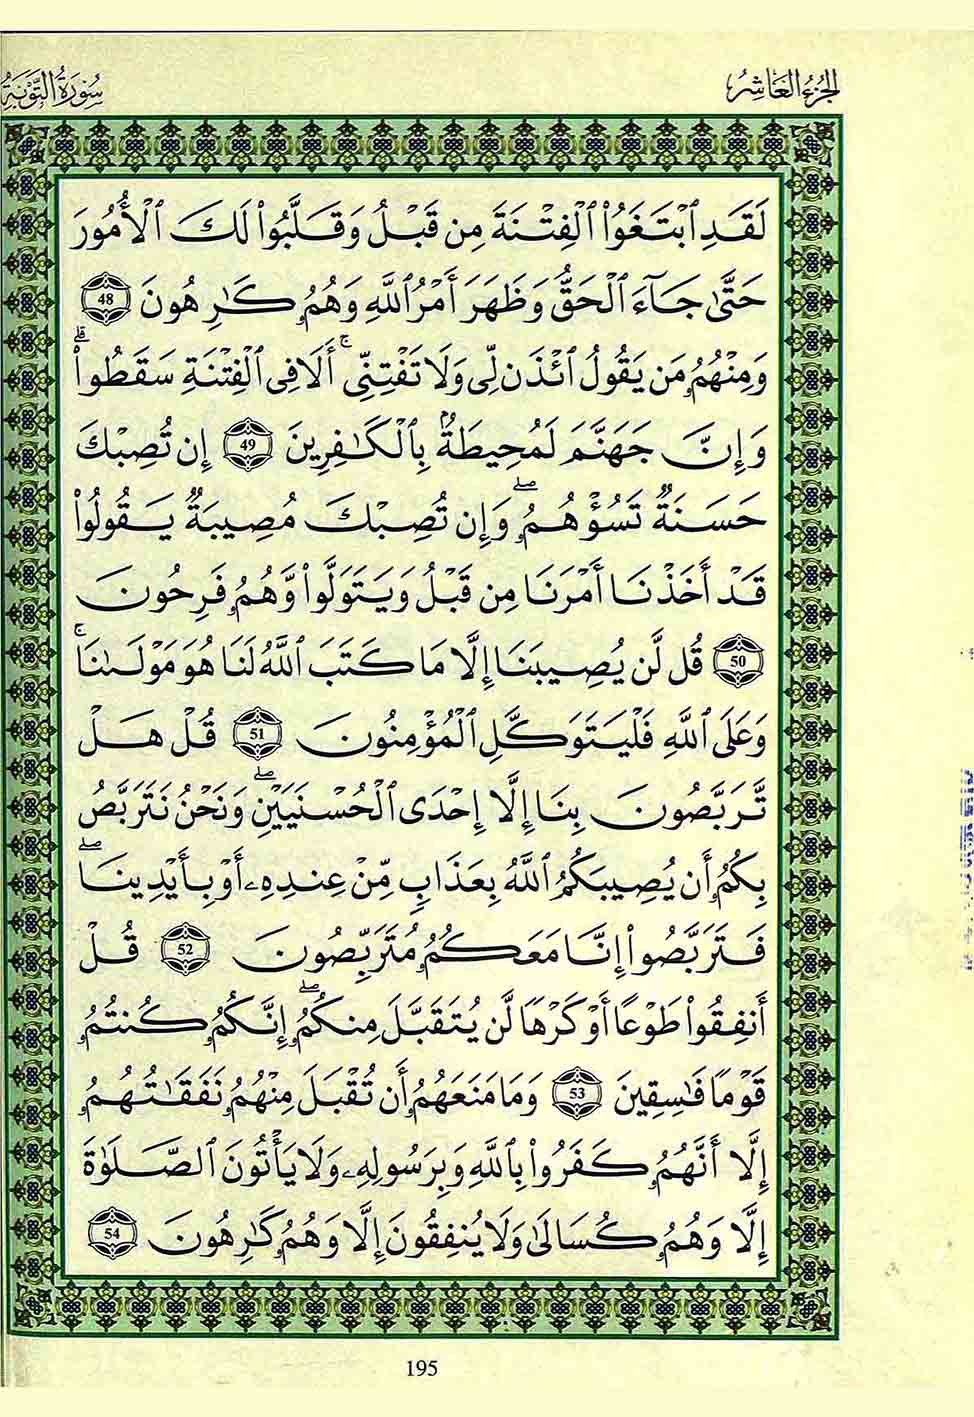 الجزء العاشر
سورة التوبة
لَقَدِ ٱبْتَغَوُا۟ ٱلْفِتْنَةَ مِن قَبْلُ وَقَلَّبُوا۟ لَكَ ٱلْأُمُورَ
حَتَّىٰ جَآءَ ٱلْحَقُّ وَظَهَرَ أَمْرُ ٱللَّهِ وَهُمُۥ كَٰرِهُونَ 48
وَمِنْهُمُۥ مَن يَقُولُ ٱئْذَن لِّى وَلَا تَفْتِنِّىٓ ۚ أَلَا فِى ٱلْفِتْنَةِ سَقَطُوا۟ ۗ
وَإِنَّ جَهَنَّمَ لَمُحِيطَةٌۢ بِٱلْكَٰفِرِينَ 49 إِن تُصِبْكَ
حَسَنَةٌ تَسُؤْهُمُۥ ۖ وَإِن تُصِبْكَ مُصِيبَةٌ يَقُولُوا۟
قَدْ أَخَذْنَا أَمْرَنَا مِن قَبْلُ وَيَتَوَلَّوا۟ وَّهُمُۥ فَرِحُونَ
50 قُل لَّن يُصِيبَنَا إِلَّا مَا كَتَبَ ٱللَّهُ لَنَا هُوَ مَوْلَىٰنَا ۚ
وَعَلَى ٱللَّهِ فَلْيَتَوَكَّلِ ٱلْمُؤْمِنُونَ 51 قُلْ هَلْ
تَّرَبَّصُونَ بِنَا إِلَّا إِحْدَى ٱلْحُسْنَيَيْنِ ۖ وَنَحْنُ نَتَرَبَّصُ
بِكُمُۥ أَن يُصِيبَكُمُ ٱللَّهُ بِعَذَابٍ مِّنْ عِندِهِۦ أَوْ بِأَيْدِينَا ۖ
فَتَرَبَّصُوا۟ إِنَّا مَعَكُمُۥ مُتَرَبِّصُونَ 52 قُلْ
أَنفِقُوا۟ طَوْعًا أَوْ كَرْهًا لَّن يُتَقَبَّلَ مِنكُمُۥ ۖ إِنَّكُمُۥ كُنتُمُۥ
قَوْمًا فَٰسِقِينَ 53 وَمَا مَنَعَهُمُۥ أَن تُقْبَلَ مِنْهُمُۥ نَفَقَٰتُهُمُۥ
إِلَّا أَنَّهُمُۥ كَفَرُوا۟ بِٱللَّهِ وَبِرَسُولِهِۦ وَلَا يَأْتُونَ ٱلصَّلَوٰةَ
إِلَّا وَهُمُۥ كُسَالَىٰ وَلَا يُنفِقُونَ إِلَّا وَهُمُۥ كَٰرِهُونَ 54
195